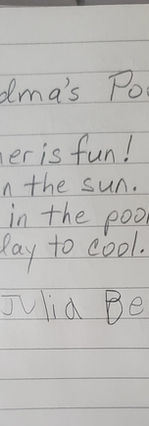 dma's Po
er is fun!
n the sun.
in the pool
lay to cool.
Julia Be